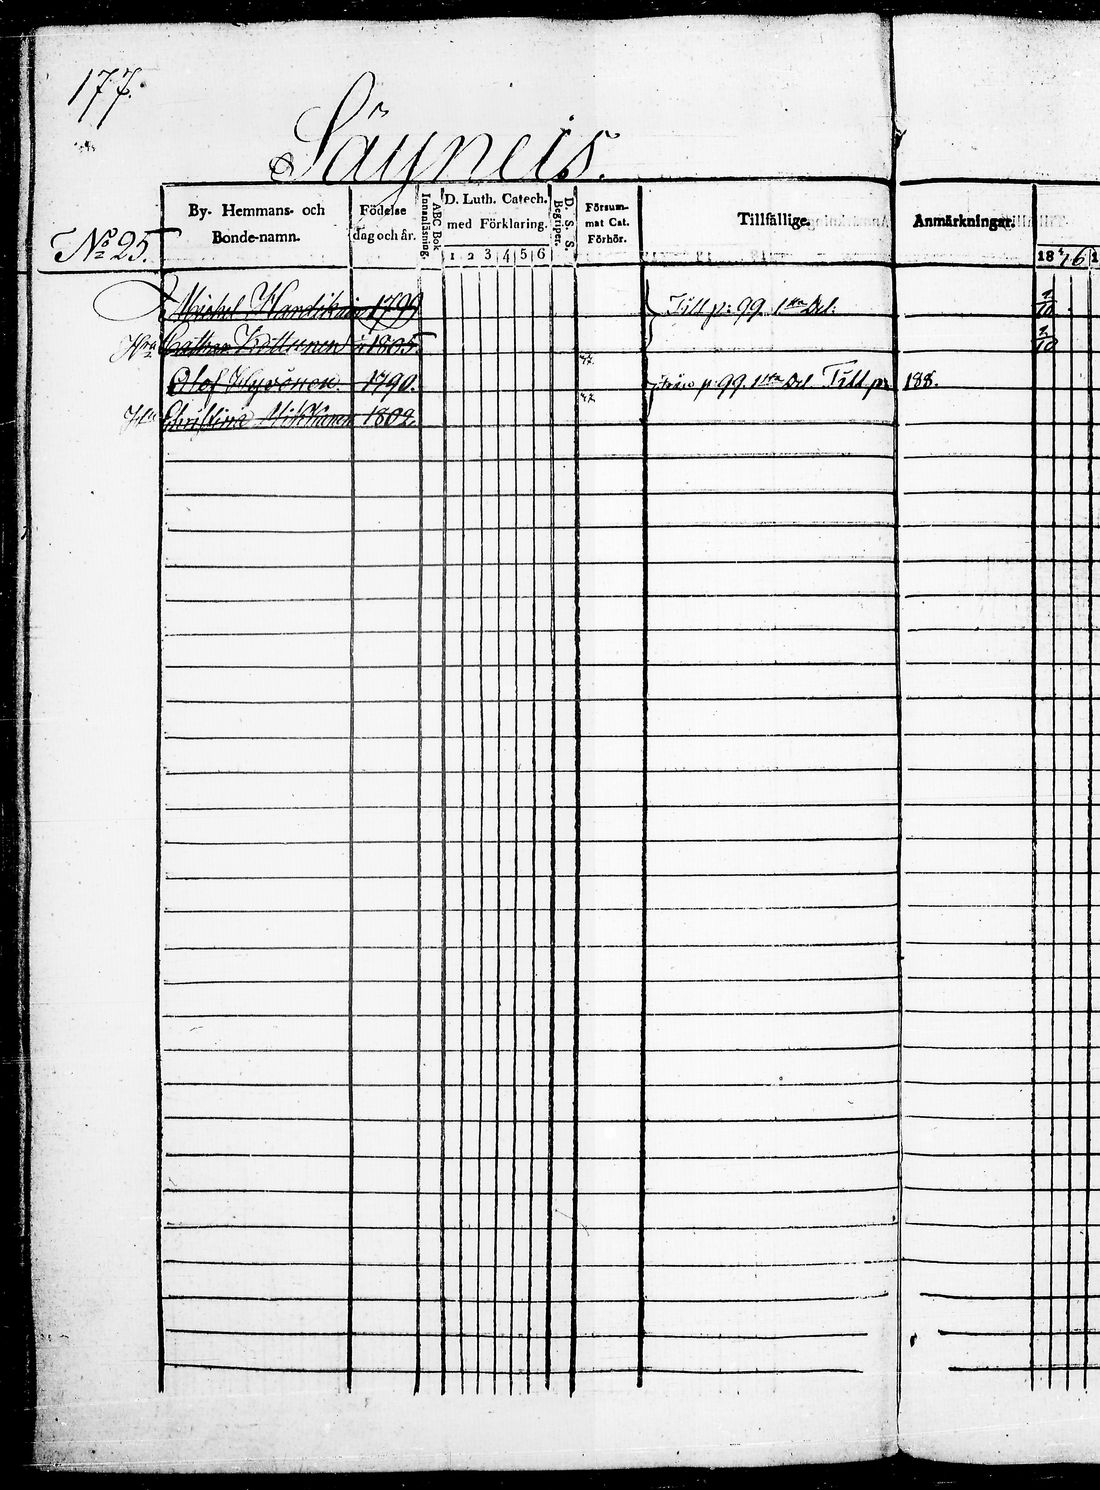 177.
Säyneis.
No 25.
By- Hemmans- och Bonde-namn.
Födelse dag och år.
ABC Bok Innanläsning.
D. Luth. Catech. med Förklaring.
1 2 3 4 5 6
D. S. S. Begriper.
Försummat Cat. Förhör.
Tillfällige.
Anmärkningar.
18
Michel 1799
Hru Cathar 1805.
Olof Hyvönen. 1790. från p 99. 1sta Del Titt p: 188.
Titt p: 99. 1sta Del.
Hu Christina Mikkänen 1802.
2/10
2/10